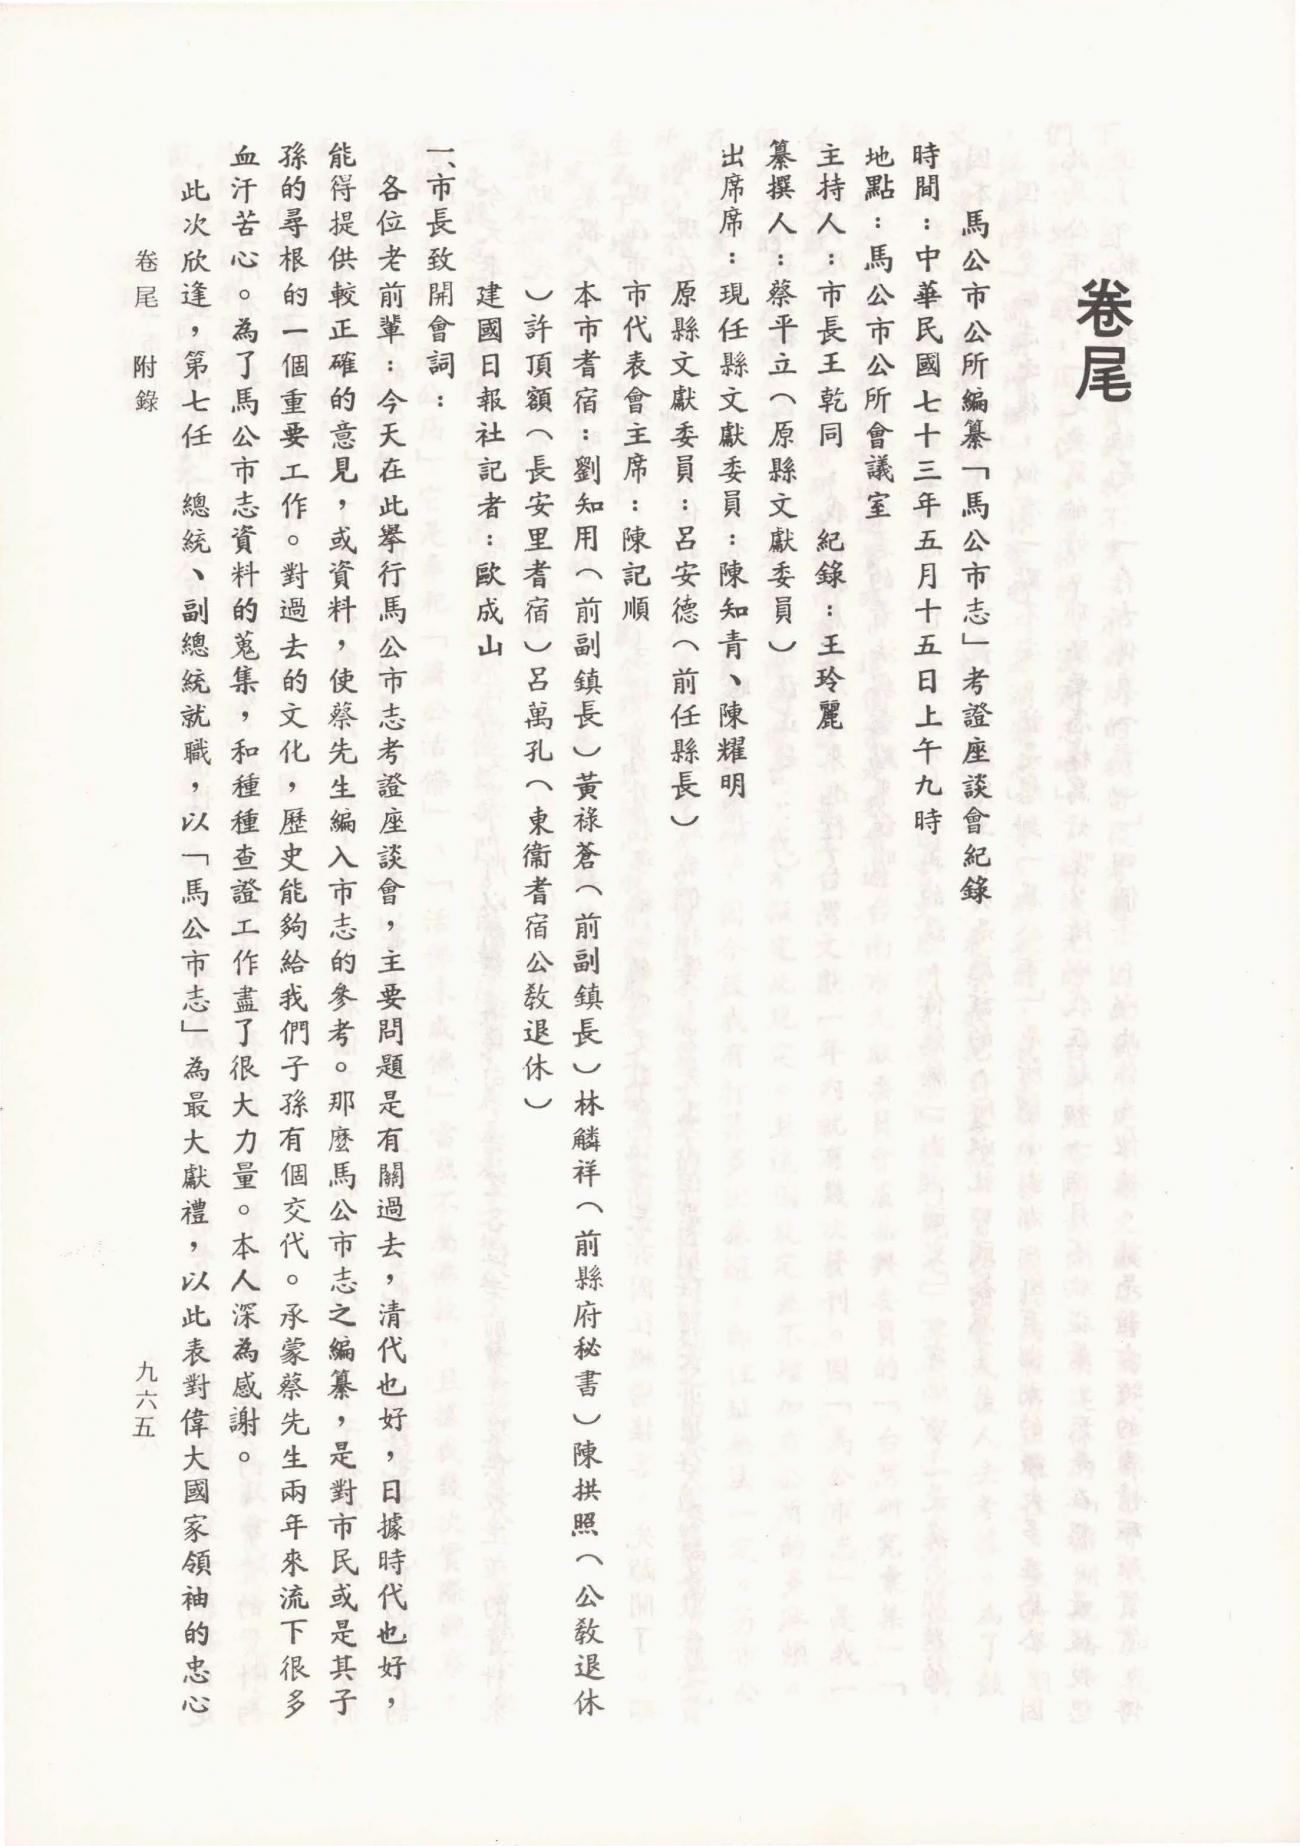 卷尾
馬公市公所編纂「馬公市志」考證座談會紀錄
時間：中華民國七十三年五月十五日上午九時
地點：馬公市公所會議室
主持人：市長王乾同　紀錄：王玲麗
纂撰人：蔡平立（原縣文獻委員）
出席席：現任縣文獻委員：陳知青、陳耀明
原縣文獻委員：呂安德（前任縣長）
市代表會主席：陳記順
本市耆宿：劉知用（前副鎮長）黃祿蒼（前副鎮長）林麟祥（前縣府秘書）陳拱照（公教退休
）許頂額（長安里耆宿）呂萬孔（東衞耆宿公教退休）
建國日報社記者：歐成山
一、市長致開會詞：
各位老前輩：今天在此舉行馬公市志考證座談會，主要問題是有關過去，清代也好，日據時代也好，
能得提供較正確的意見，或資料，使蔡先生編入市志的參考。那麼馬公市志之編纂，是對市民或是其子
孫的尋根的一個重要工作。對過去的文化，歷史能夠給我們子孫有個交代。承蒙蔡先生兩年來流下很多
血汗苦心。為了馬公市志資料的蒐集，和種種查證工作盡了很大力量。本人深為感謝。
此次欣逢，第七任　總統、副總統就職，以「馬公市志」為最大獻禮，以此表對偉大國家領袖的忠心
卷尾　附錄
九六五